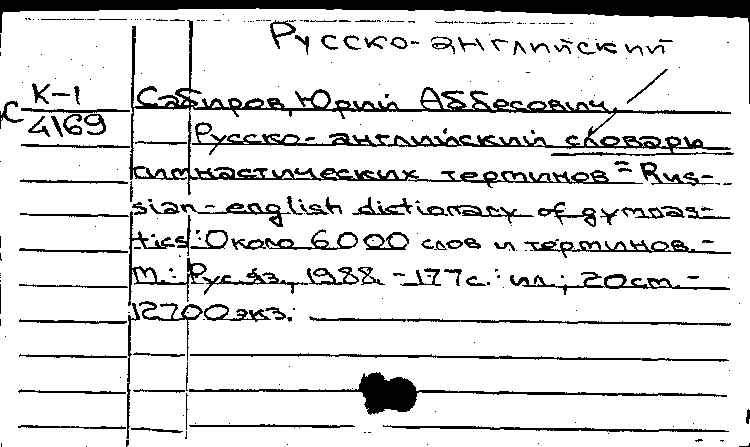 Русско-английский
С К-1
4169
Сабиров, Юрий Аббесович,
Русско-английский словарь
гимнастических терминов = Rus-
sian-english dictionary of gymnas-
tics: Около 6000 слов и терминов. -
М.: Рус. яз., 1988. - 177 с.: ил.; 20 см. -
12700 экз.